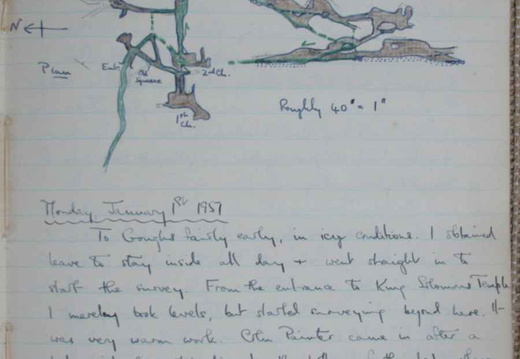 N
Plan
Ent.
Old Square
2nd Ch.
1st Ch.
Roughly 40' = 1"
Monday January 1st 1951
To Goughs fairly early, in icy conditions. I obtained
leave to stay inside all day + went straight in to
start the survey. From the entrance to King Solomons Temple
I merely took levels, but started surveying beyond here. It
was very warm work. Colin Painter came in after a